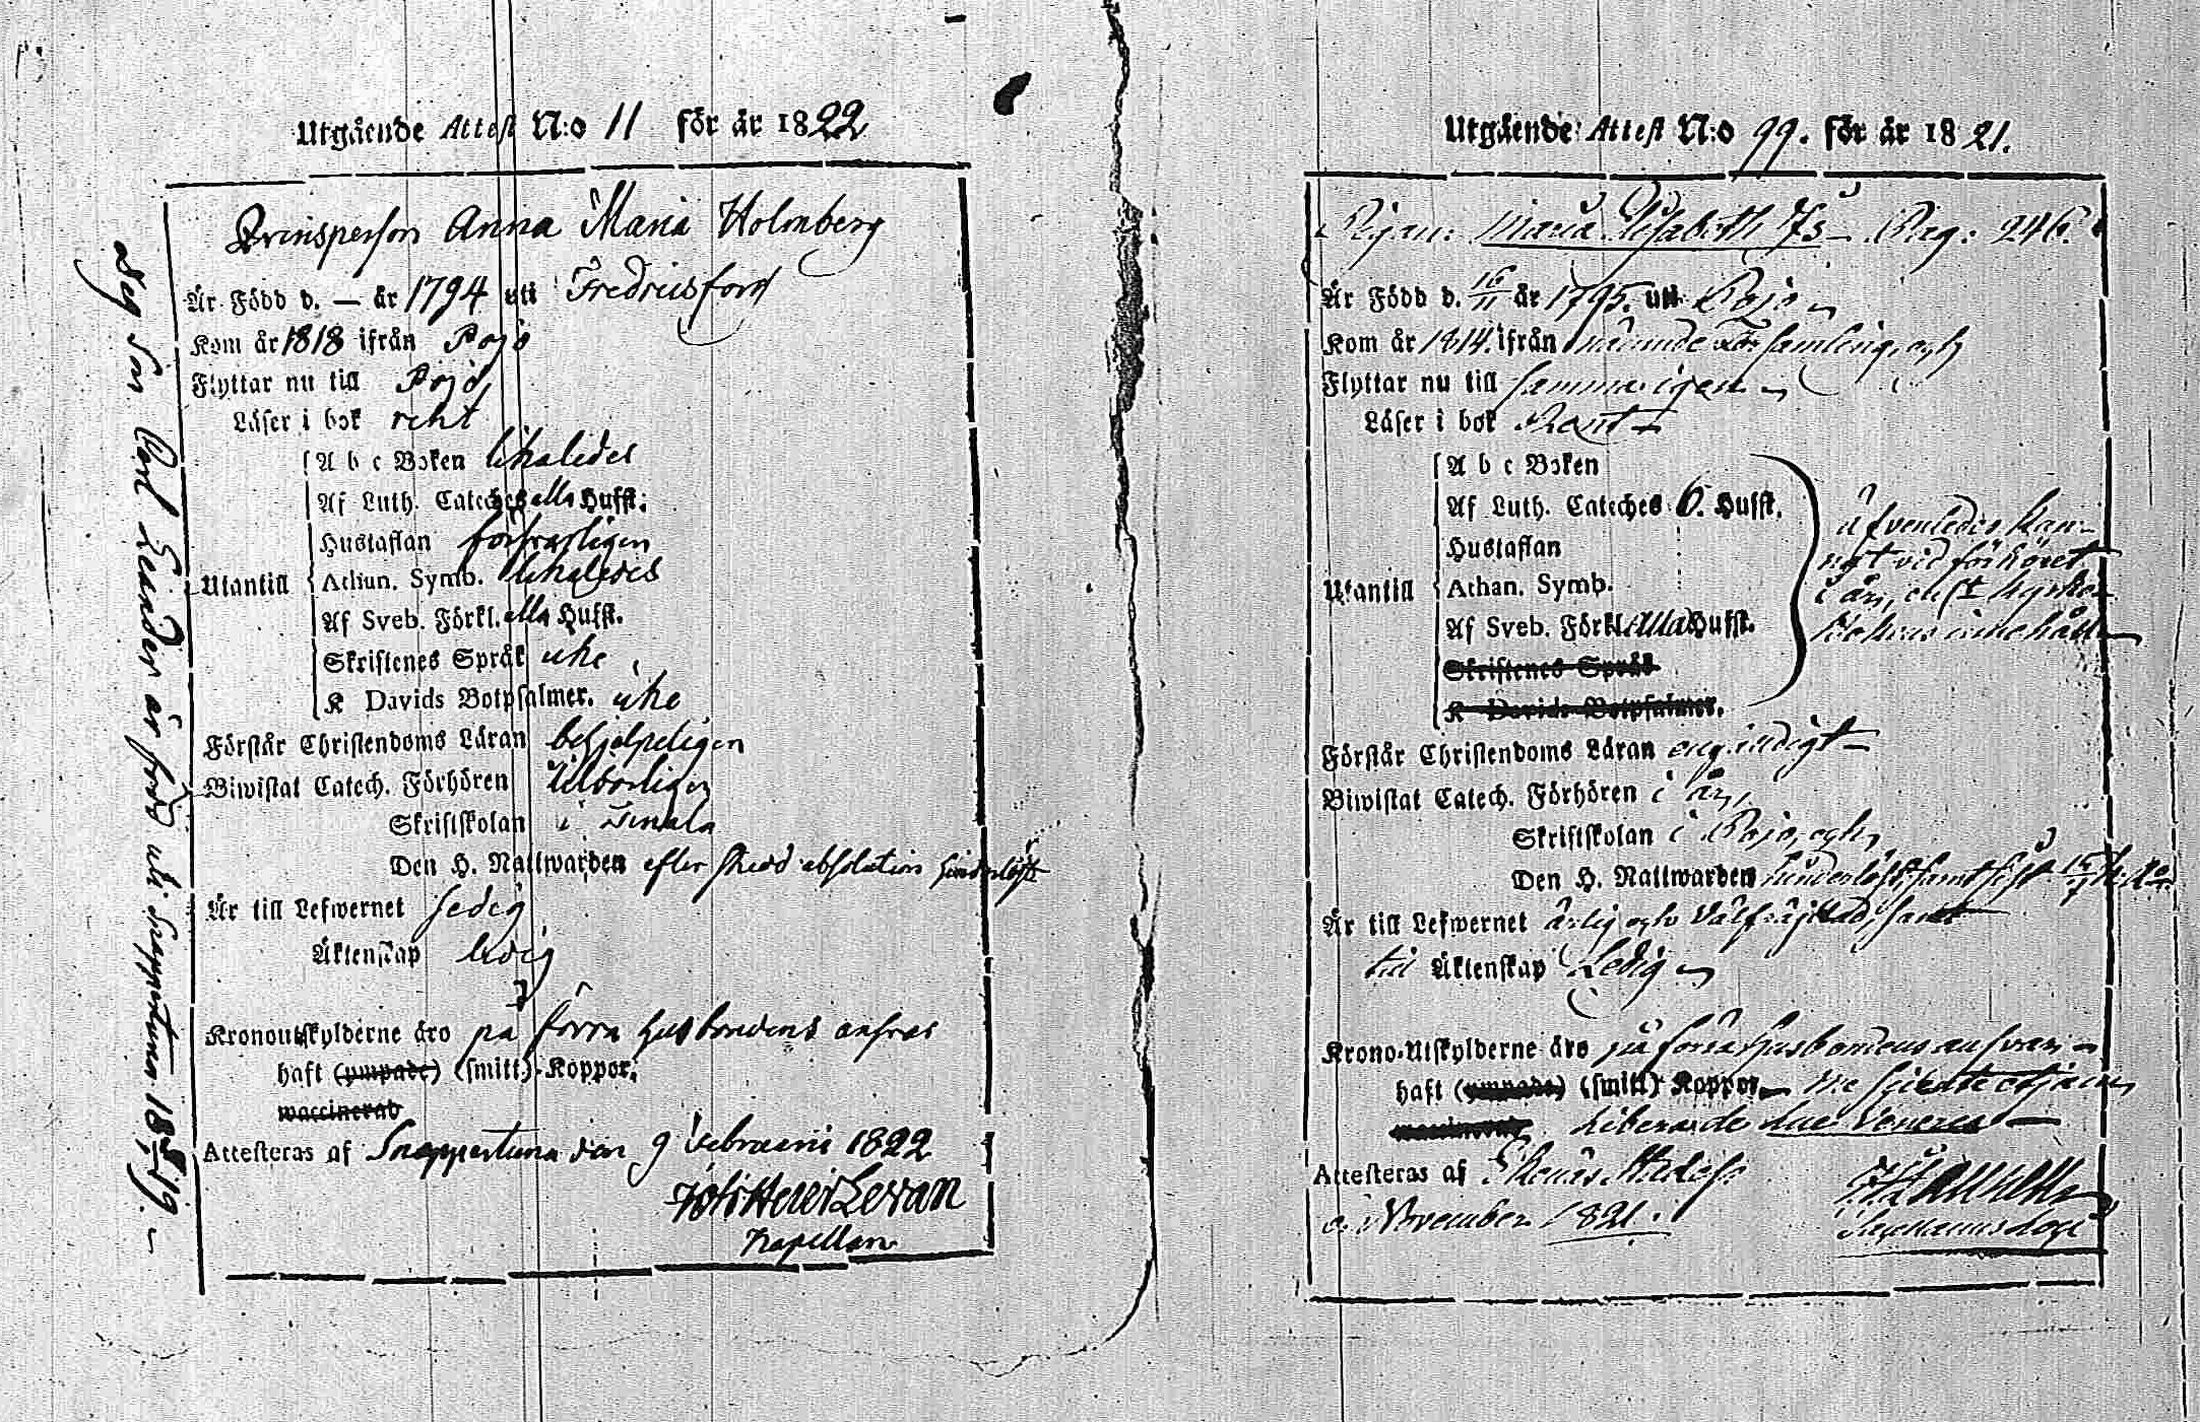 Utgående Attest N:o 11 för år 1822
Qvinsperson Anna Maria Holmberg
Är Född d. — år 1794 uti Fredricsfors
Kom år 1818 ifrån Pojo
Flyttar nu till Pojo
Läser i bok reht
Utantill
A b c Boken likaledes
Af Luth. Cateches alla Hufst:
Hustaflan försvarligen
Athan. Symb. likaledes
Af Sveb. Förkl. alla Hufst.
Skriftenes Språk icke
K Davids Botpsalmer. icke
Förstår Christendoms Läran behjelpeligen
Biwistat Catech. Förhören tilbörligen
Skriftskolan i Tenala
Den H. Nattwarden efter skedd absolution hinderlöst
Är till Lefwernet sedig
Äktenskap ledig
Kronoutskylderne äro på förra husbondens ansvar
haft (ympade) (smitt) Koppor.
waccinerad
Attesteras af Snappertuna den 9 Februarii 1822
Levan
Kapellan
Deg Son Carl Leander är född uti Snappertuna 18 19. —
Utgående Attest N:o 99. för år 1821.
Pigan: Maria Elisabeth Pag: 246.
Är Född d. 16/11 år 1795. uti Pojo
Kom år 1814. ifrån nämnde Församling, och
Flyttar nu till samma igen
Läser i bok
Utantill
A b c Boken
Af Luth. Cateches 6. Hufst.
Hustaflan
Athan. Symb.
Af Sveb. Förkl. alla Hufst.
Skriftenes Språk
K Davids Botpsalmer.
äfvenledes kän-
vid förhöret
i år, Kyrko-
Bokens innehåll
Förstår Christendoms Läran
Biwistat Catech. Förhören i år,
Skriftskolan i Pojo, och,
Den H. Nattwarden hinderlöst, samt sist
Är till Lefwernet ärlig och välfräjdad, samt
till Äktenskap Ledig
Krono-Utskylderne äro på förra Husbondens ansvar
haft (ympade) (smitt) Koppor, me
waccinerad lue Venerea —
Attesteras af Ekenäs Stad
November 1821.